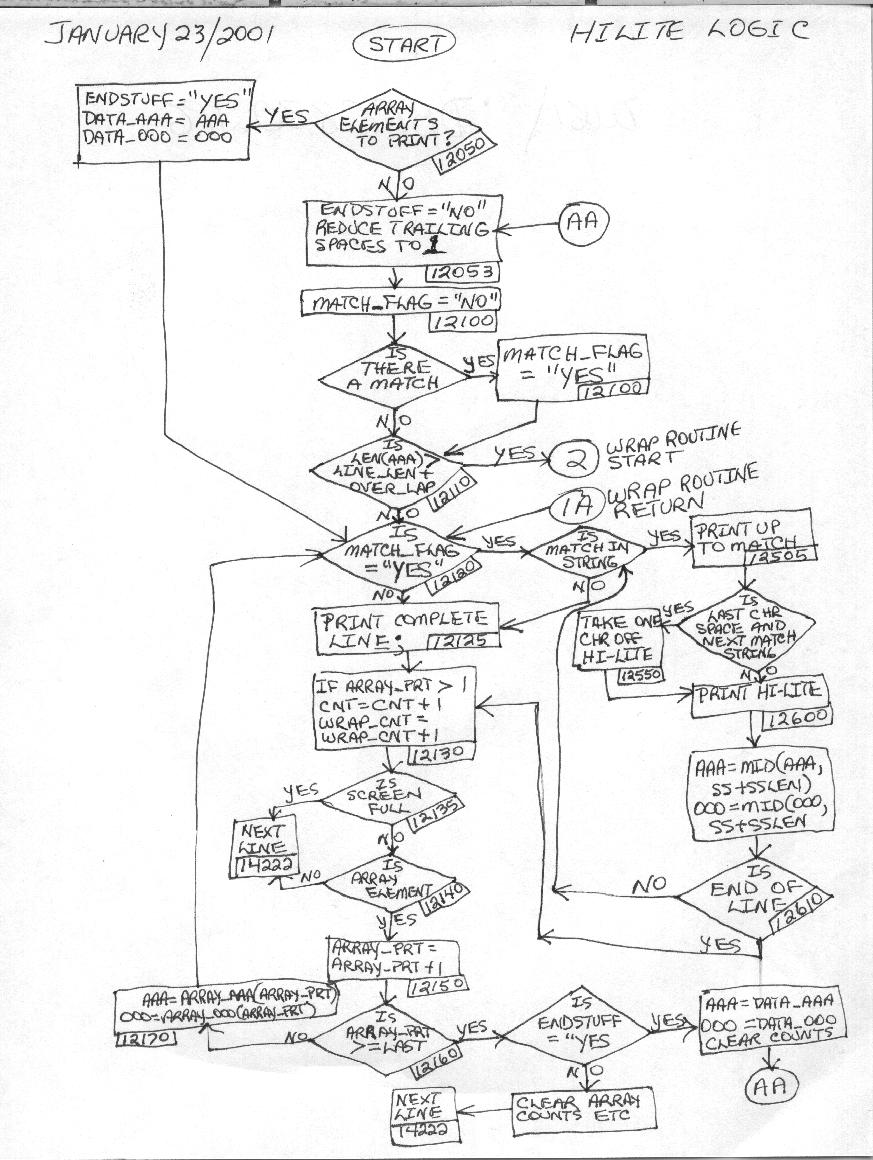 JANUARY 23/2001
START
HILITE LOGIC
ENDSTUFF="YES"
DATA_AAA= AAA
DATA_OOO = OOO
YES
ARRAY
ELEMENTS
TO PRINT?
12050
NO
ENDSTUFF="NO"
REDUCE TRAILING
SPACES TO 1
12053
AA
MATCH_FLAG="NO"
12100
IS
THERE
A MATCH
YES
MATCH_FLAG
= "YES"
12100
NO
IS
LEN(AAA)>
LINE_LEN+
OVER_LAP
12110
YES
2
WRAP ROUTINE
START
NO
1A
WRAP ROUTINE
RETURN
IS
MATCH_FLAG
="YES"
12120
YES
IS
MATCH IN
STRING
YES
PRINT UP
TO MATCH
12505
NO
NO
PRINT COMPLETE
LINE:
12125
IS
LAST CHR
SPACE AND
NEXT MATCH
STRING
YES
TAKE ONE
CHR OFF
HI-LITE
12550
NO
PRINT HI-LITE
12600
IF ARRAY_PRT > 1
CNT=CNT+1
WRAP_CNT=
WRAP_CNT+1
12130
AAA=MID(AAA,
SS+SSLEN)
OOO=MID(OOO,
SS+SSLEN
IS
SCREEN
FULL
12135
YES
NEXT
LINE
14222
NO
IS
ARRAY
ELEMENT
12140
NO
IS
END OF
LINE
12610
NO
YES
YES
ARRAY_PRT=
ARRAY_PRT+1
12150
AAA=ARRAY_AAA(ARRAY_PRT)
OOO=ARRAY_OOO(ARRAY_PRT)
12170
NO
IS
ARRAY_PRT
>=LAST
12160
YES
IS
ENDSTUFF
="YES
YES
AAA=DATA_AAA
OOO=DATA_OOO
CLEAR COUNTS
AA
NO
CLEAR ARRAY
COUNTS ETC
NEXT
LINE
14222